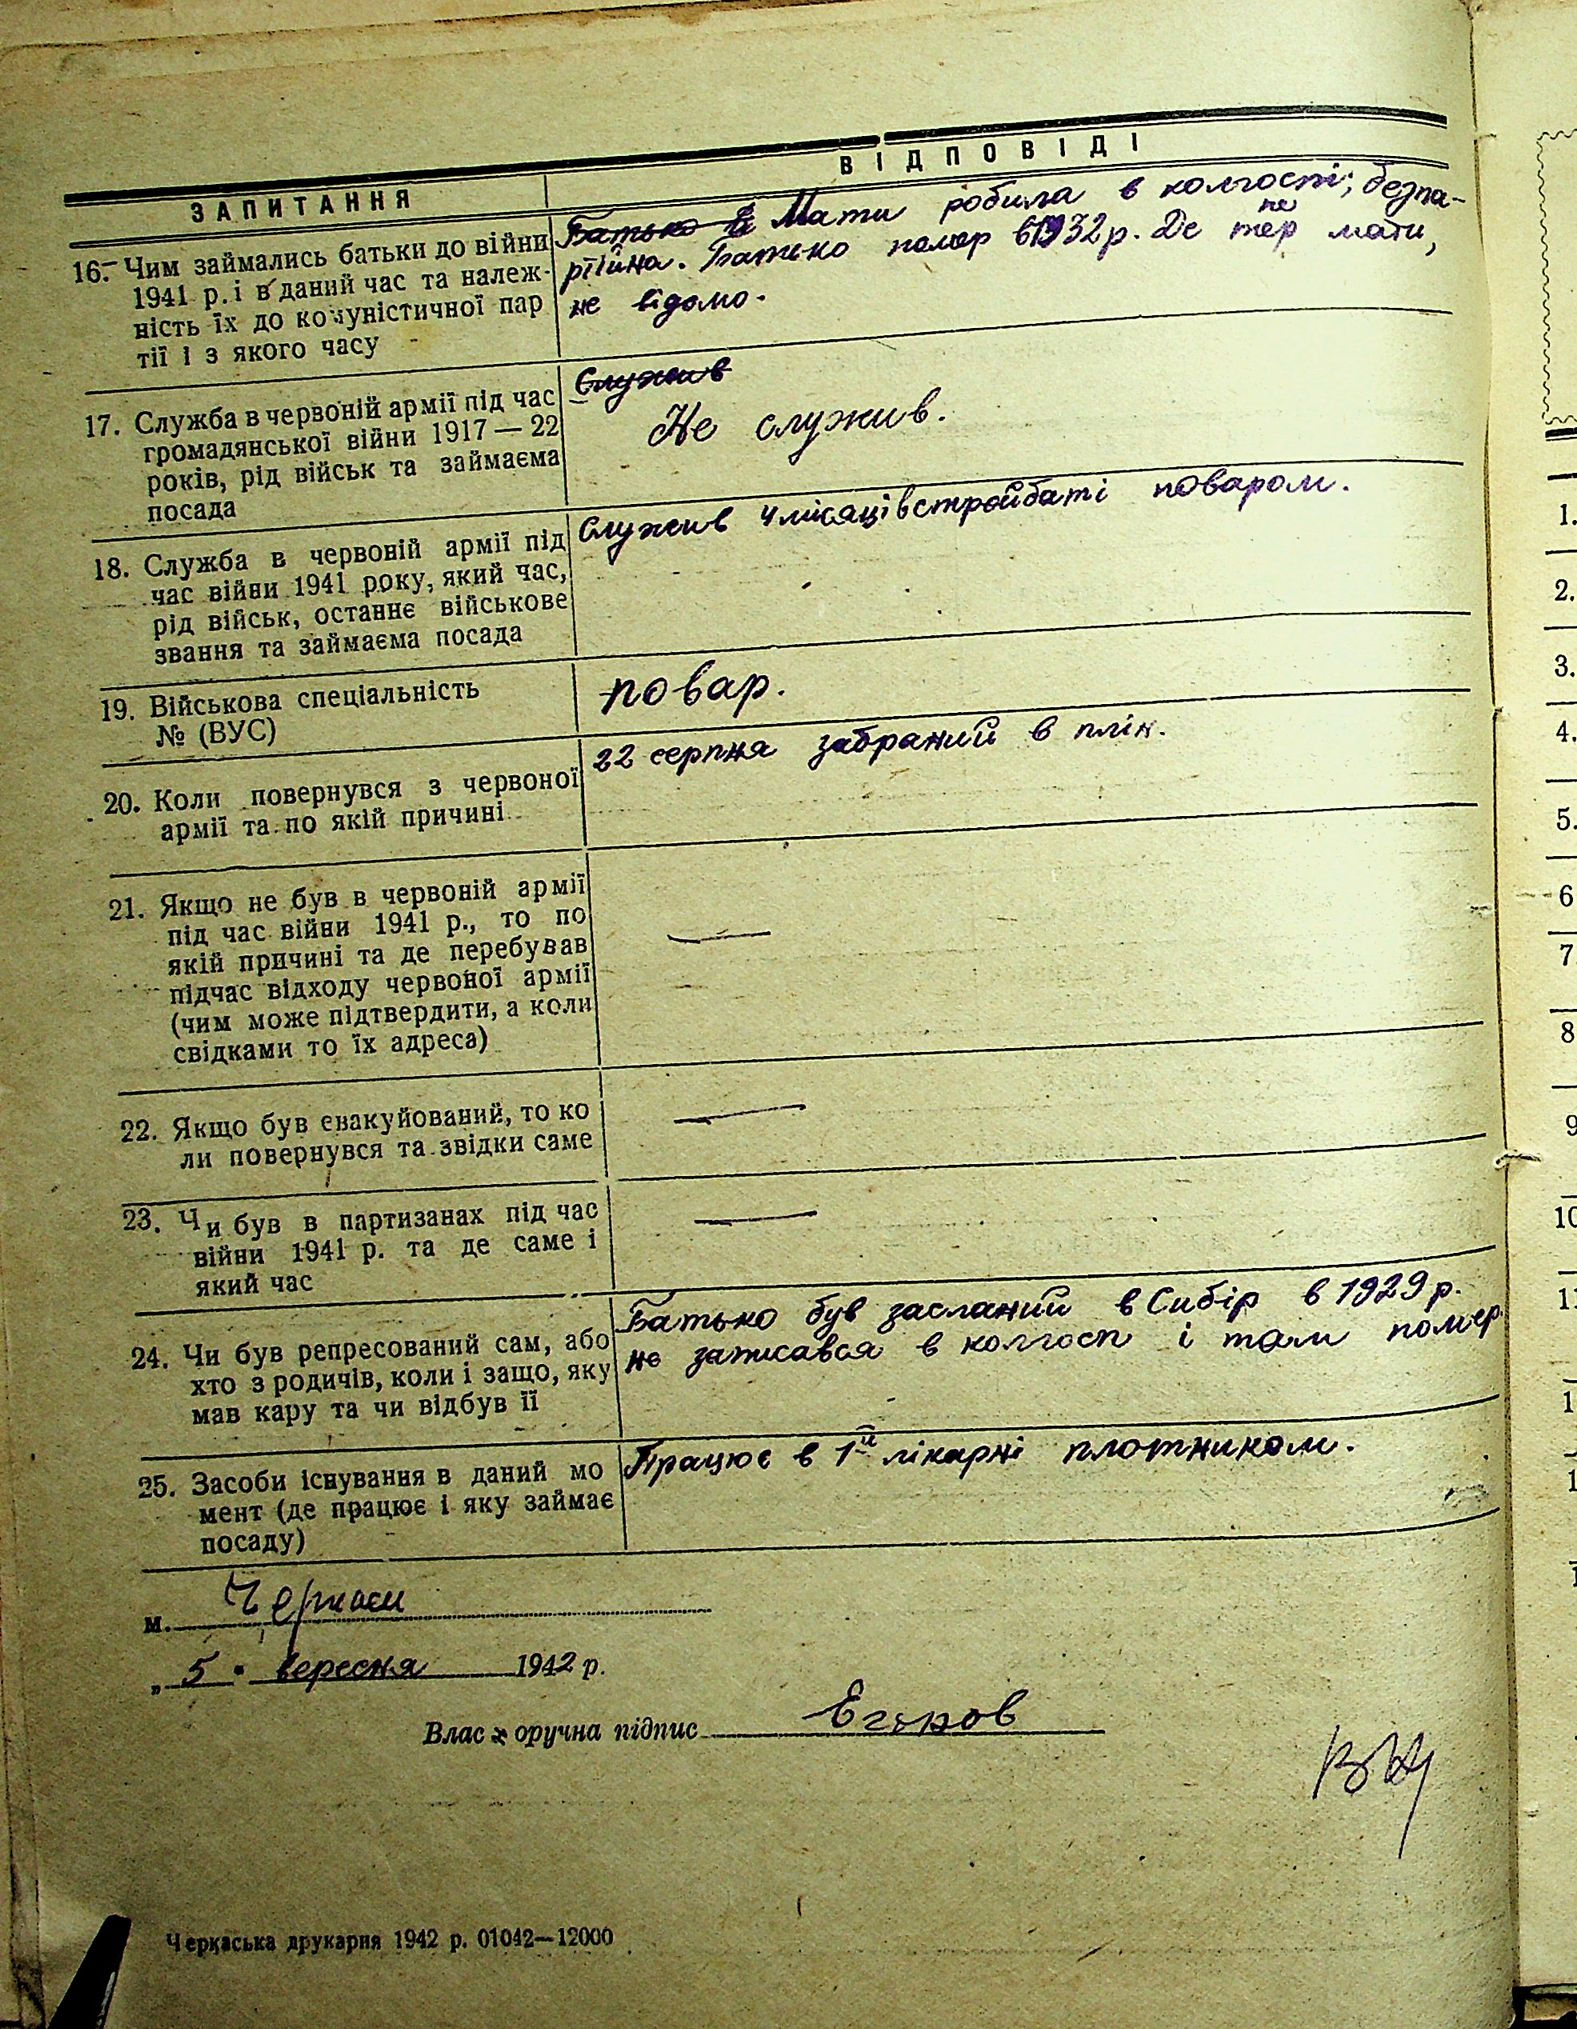 ЗАПИТАННЯ
ВІДПОВІДІ
16. Чим займались батьки до війни
1941 р. і в даний час та належ-
ність їх до комуністичної пар
тії і з якого часу
Батько в Мати робила в колгоспі; безпа-
ртійна. Батько помер в 1932 р. Де тепер мати,
не відомо.
17. Служба в червоній армії під час
громадянської війни 1917—22
років, рід військ та займаєма
посада
Служив
Не служив.
18. Служба в червоній армії під
час війни 1941 року, який час,
рід військ, останнє військове
звання та займаєма посада
Служив 4 місяці в стройбаті поваром.
19. Військова спеціальність
№ (ВУС)
повар.
20. Коли повернувся з червоної
армії та по якій причині
22 серпня забраний в плін.
21. Якщо не був в червоній армії
під час війни 1941 р., то по
якій причині та де перебував
підчас відходу червоної армії
(чим може підтвердити, а коли
свідками то їх адреса)
—
22. Якщо був евакуйований, то ко
ли повернувся та звідки саме
—
23. Чи був в партизанах під час
війни 1941 р. та де саме і
який час
—
24. Чи був репресований сам, або
хто з родичів, коли і защо, яку
мав кару та чи відбув її
Батько був засланий в Сибір в 1929 р.
не записався в колгосп і там помер
25. Засоби існування в даний мо
мент (де працює і яку займає
посаду)
Працює в 1й лікарні плотником.
м. Черкаси
„ 5 " вересня 1942 р.
Власноручна підпис Егоров
Черкаська друкарня 1942 р. 01042—12000
1.
2.
3.
4.
5.
6
7
8
9
10
11
1
1
1